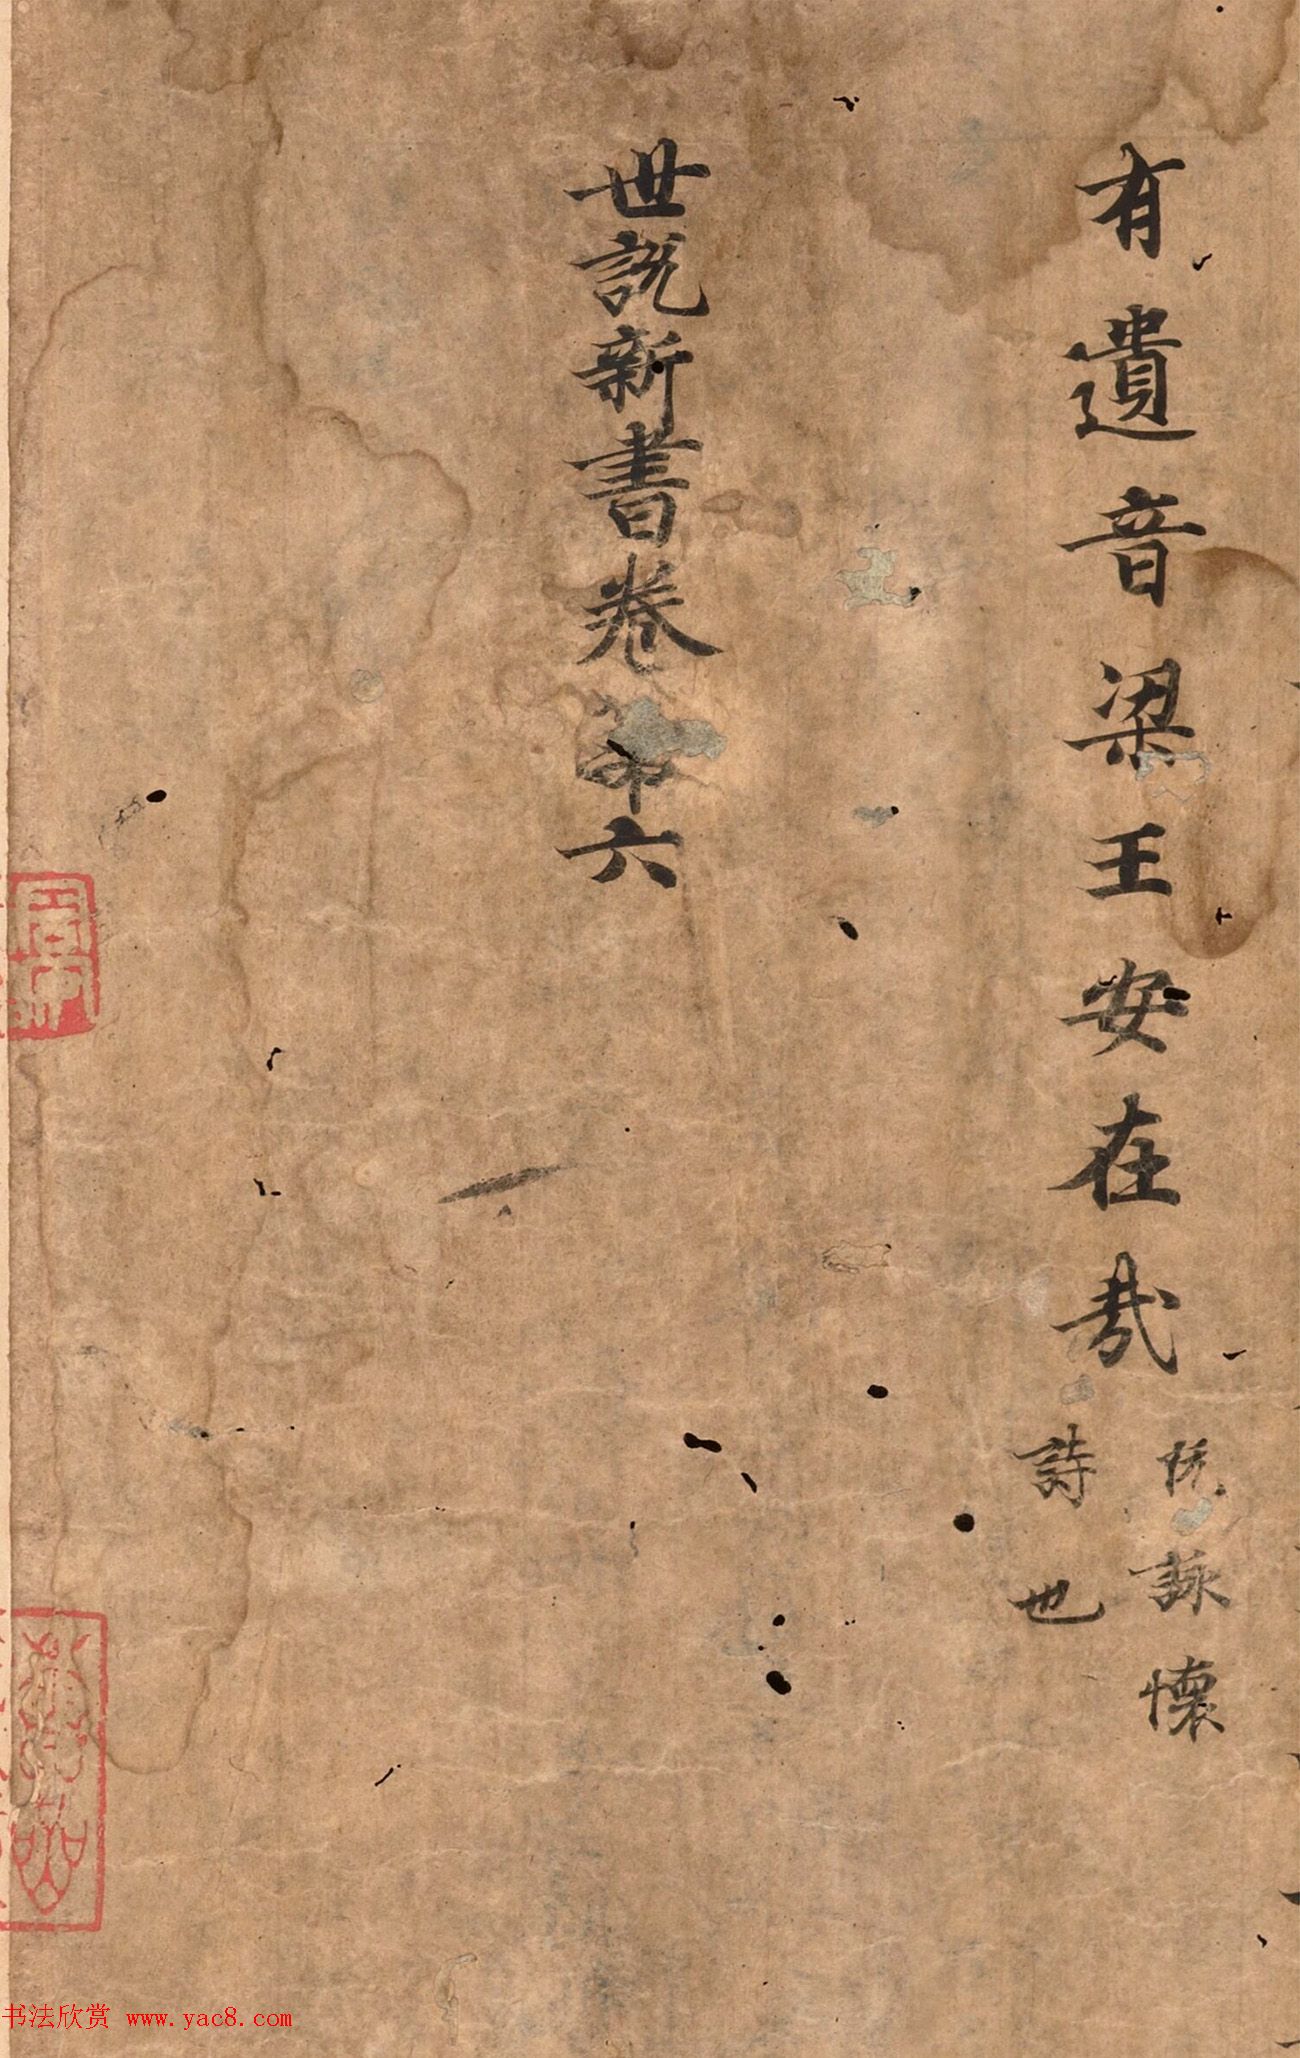 有遺音梁王安在哉
阮詠懷
詩也
世說新書卷第六
书法欣赏 www.yac8.com